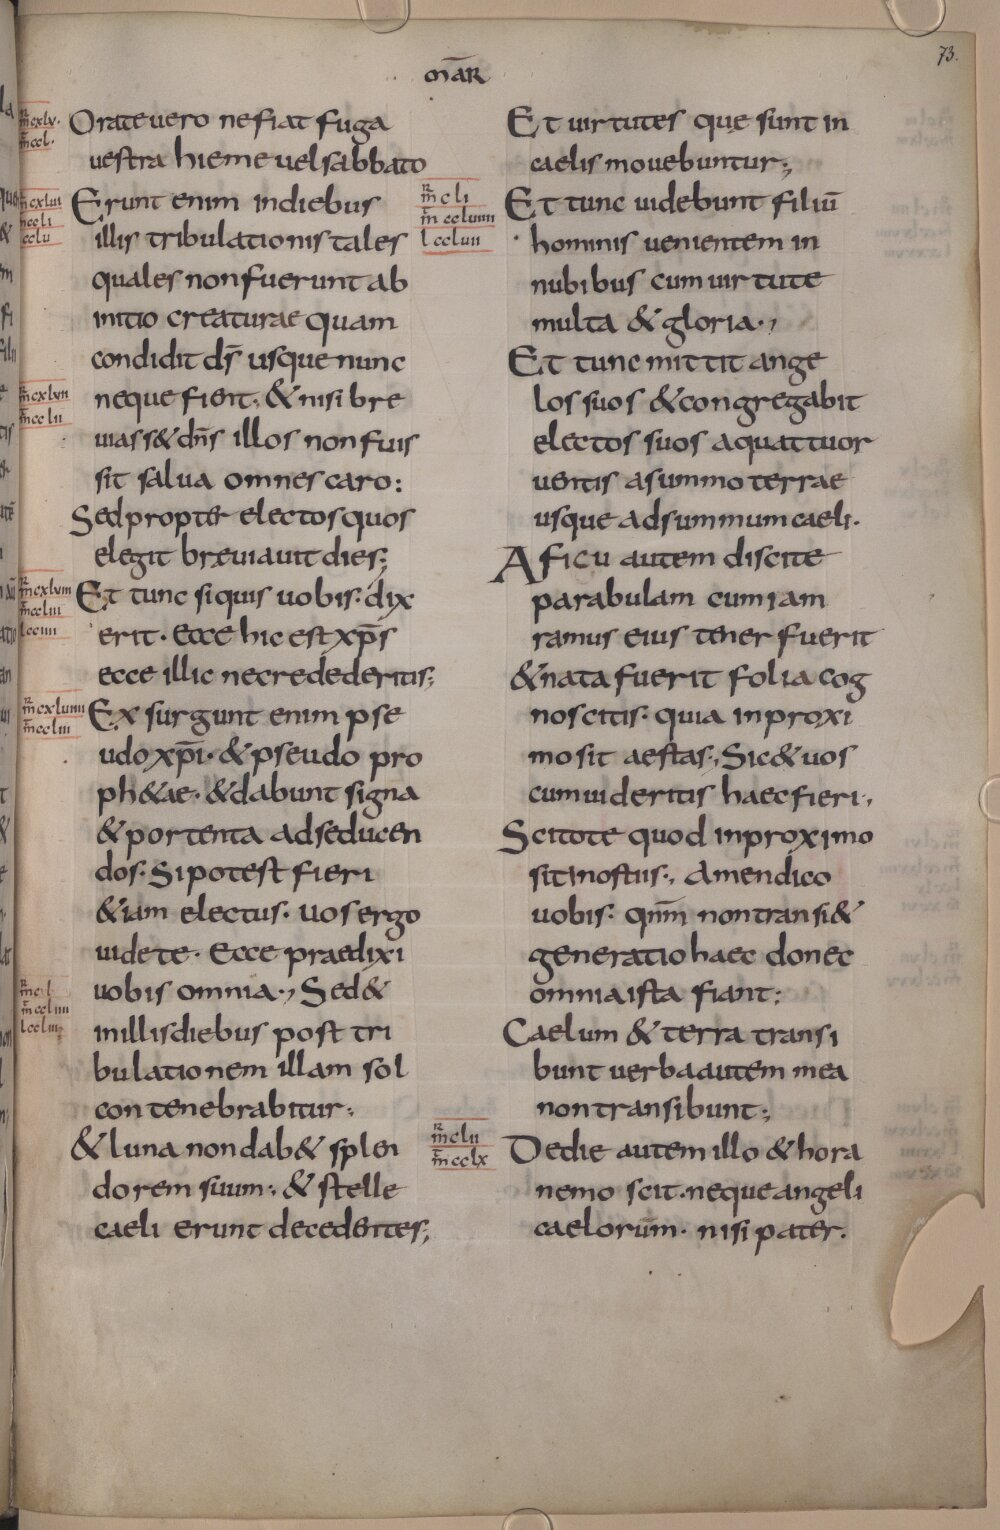 73.
māR
Orate uero ne fiat fuga
uestra hieme uel sabbato
Erunt enim in diebus
illis tribulationis tales
quales non fuerunt ab
initio creaturae quam
condidit d̄s usque nunc
neque fient· & nisi bre
uiass& dn̄s illos non fuis
sit salua omnes caro:
Sed propter electos quos
elegit breuiauit dies;
Et tunc si quis uobis· dix
erit· Ecce hic est xp̄s
ecce illic ne credederitis;
Ex surgunt enim pse
udo xp̄i· & pseudo pro
ph&ae· & dabunt signa
& portenta ad seducen
dos· Si potest fieri
&iam electus· uos ergo
uidete· Ecce praedixi
uobis omnia·, Sed &
in illis diebus post tri
bulationem illam sol
contenebrabitur;
& luna non dab& splen
dorem suum; & stelle
caeli erunt decedentes;
Et uirtutes que sunt in
caelis mouebuntur;
Et tunc uidebunt filiū
hominis uenientem in
nubibus cum uirtute
multa & gloria·,
Et tunc mittit ange
los suos & congregabit
electos suos a quattuor
uentis a summo terrae
usque ad summum caeli·
A ficu autem discite
parabulam cum iam
ramus eius tener fuerit
& nata fuerit folia cog
noscitis· quia in proxi
mo sit aestas·, Sic & uos
cum uideritis haec fieri·,
Scitote quod in proximo
sit in ostiis·, Amen dico
uobis· qnm̄ non transi&
generatio haec donec
omnia ista fiant;
Caelum & terra transi
bunt uerba autem mea
non transibunt;
De die autem illo & hora
nemo scit· neque angeli
caelorum· nisi pater·
m̄ cxlv·
m̄ ccl·
m̄ cxlui
m̄ ccli
cclu
m̄ cxluii
m̄ cclii
m̄ cxluiii
m̄ ccliii
m̄ cxluiiii
m̄ ccliii
m̄ cl
m̄ ccliiii
m̄ cli
m̄ ccluiiii
l ccluii
m̄ clii
m̄ cclx